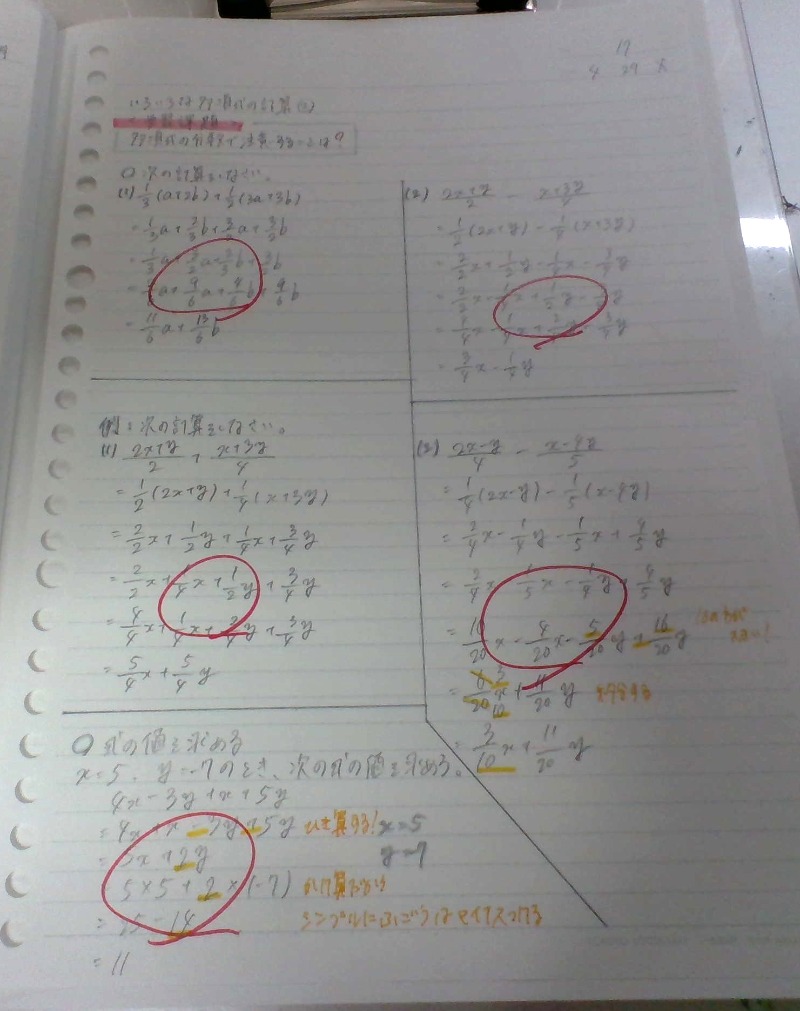 17
4 29
いろいろな多項式の計算(2)
学習課題
多項式の計算で注意することは?
○次の計算をしなさい。
(1) 1/3(a+2b)+1/2(3a+3b)
=1/3a+2/3b+3/2a+3/2b
=11/6a+13/6b
(2) 2x+y/2 - x+3y/4
=1/2(2x+y)-1/4(x+3y)
=2/2x+1/2y-1/4x-3/4y
=3/4x-1/4y
例:次の計算をしなさい。
(1) 2x+y/2 + x+3y/4
=1/2(2x+y)+1/4(x+3y)
=2/2x+1/2y+1/4x+3/4y
=2/2x+1/4x+1/2y+3/4y
=4/4x+1/4x+2/4y+3/4y
=5/4x+5/4y
(2) 2x-y/4 - x-4y/5
=1/4(2x-y)-1/5(x-4y)
=2/4x-1/4y-1/5x+4/5y
=2/4x-1/5x-1/4y+4/5y
=10/20x-4/20x-5/20y+16/20y
=6/20x 3/10+11/20y 約分する
=3/10x+11/20y
○式の値を求める
x=5、y=-7のとき、次の式の値を求める。
4x-3y+x+5y
=4x+x-3y+5y ひき算する! x=5
=5x+2y y=7
5×5+2×(-7)
=25-14 シンプルにふごうはマイナスつける
=11